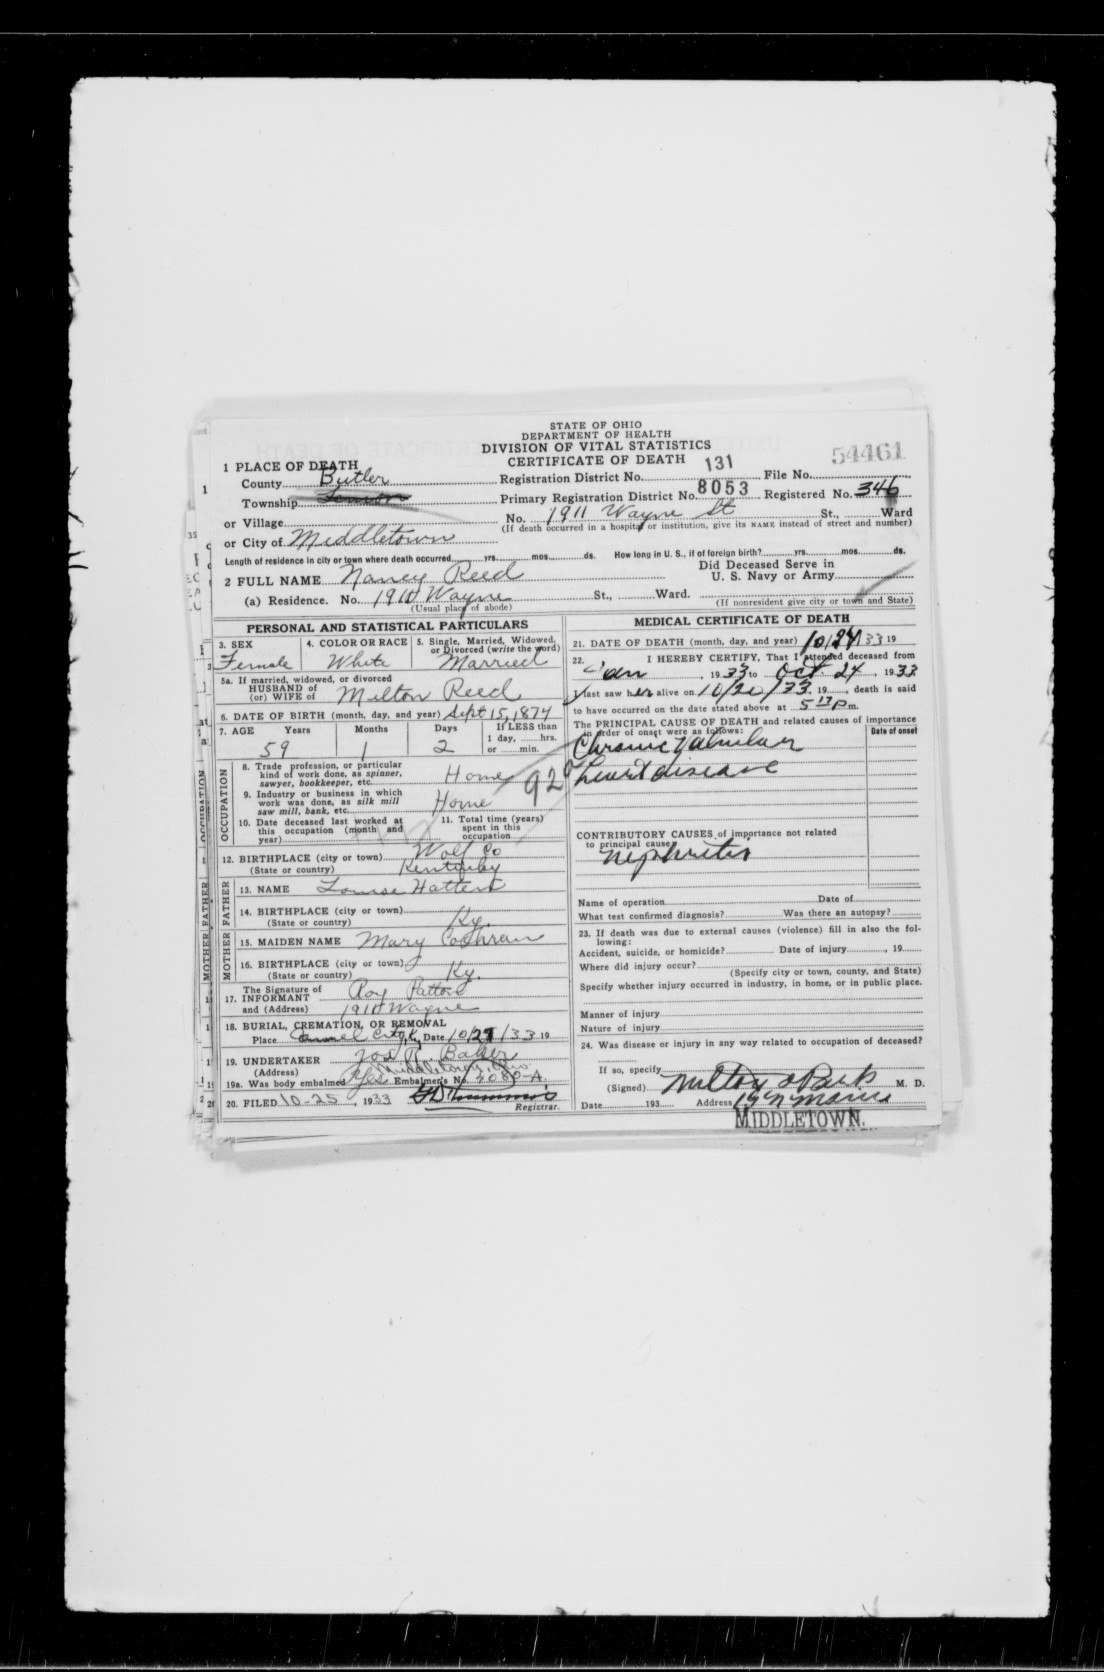 STATE OF OHIO
DEPARTMENT OF HEALTH
DIVISION OF VITAL STATISTICS
CERTIFICATE OF DEATH
54461
1 PLACE OF DEATH
County Butler Registration District No. 131 File No.
Township Primary Registration District No. 8053 Registered No. 346
or Village No. 1911 Wayne St St., Ward
(If death occurred in a hospital or institution, give its NAME instead of street and number)
or City of Middletown
Length of residence in city or town where death occurred yrs. mos. ds. How long in U. S., if of foreign birth? yrs. mos. ds.
2 FULL NAME Nancy Reed Did Deceased Serve in U. S. Navy or Army
(a) Residence. No. 1911 Wayne St., Ward.
(Usual place of abode) (If nonresident give city or town and State)
PERSONAL AND STATISTICAL PARTICULARS
3. SEX Female
4. COLOR OR RACE White
5. Single, Married, Widowed, or Divorced (write the word) Married
5a. If married, widowed, or divorced
HUSBAND of
(or) WIFE of Milton Reed
6. DATE OF BIRTH (month, day, and year) Sept 15, 1874
7. AGE Years Months Days If LESS than
1 day, hrs.
or min.
59 1 2
OCCUPATION
8. Trade profession, or particular
kind of work done, as spinner,
sawyer, bookkeeper, etc. Home
9. Industry or business in which
work was done, as silk mill
saw mill, bank, etc. Home
10. Date deceased last worked at
this occupation (month and
year)
11. Total time (years)
spent in this
occupation
12. BIRTHPLACE (city or town) Wolf Co
(State or country) Kentucky
FATHER
13. NAME Hatten
14. BIRTHPLACE (city or town)
(State or country) Ky.
MOTHER
15. MAIDEN NAME Mary Cochran
16. BIRTHPLACE (city or town)
(State or country) Ky.
17. The Signature of
INFORMANT Roy Patton
and (Address) 1911 Wayne
18. BURIAL, CREMATION, OR REMOVAL
Place City, Ky Date 10/27/33 19
19. UNDERTAKER Jos R. Baker
(Address) Middletown Ohio
19a. Was body embalmed Yes Embalmer's No. 4080-A
20. FILED 10-25, 1933
Registrar.
MEDICAL CERTIFICATE OF DEATH
21. DATE OF DEATH (month, day, and year) 10/24/33 19
22. I HEREBY CERTIFY, That I attended deceased from
Jan, 1933 to Oct. 24, 1933
I last saw her alive on 10/20/33, 19, death is said
to have occurred on the date stated above at 5 13 P m.
The PRINCIPAL CAUSE OF DEATH and related causes of importance
in order of onset were as follows: Date of onset
Chronic Valvular
heart disease
92
CONTRIBUTORY CAUSES of importance not related
to principal cause:
Nephritis
Name of operation Date of
What test confirmed diagnosis? Was there an autopsy?
23. If death was due to external causes (violence) fill in also the following:
Accident, suicide, or homicide? Date of injury, 19
Where did injury occur?
(Specify city or town, county, and State)
Specify whether injury occurred in industry, in home, or in public place.
Manner of injury
Nature of injury
24. Was disease or injury in any way related to occupation of deceased?
If so, specify
(Signed) M. D.
Date 193 Address
MIDDLETOWN.